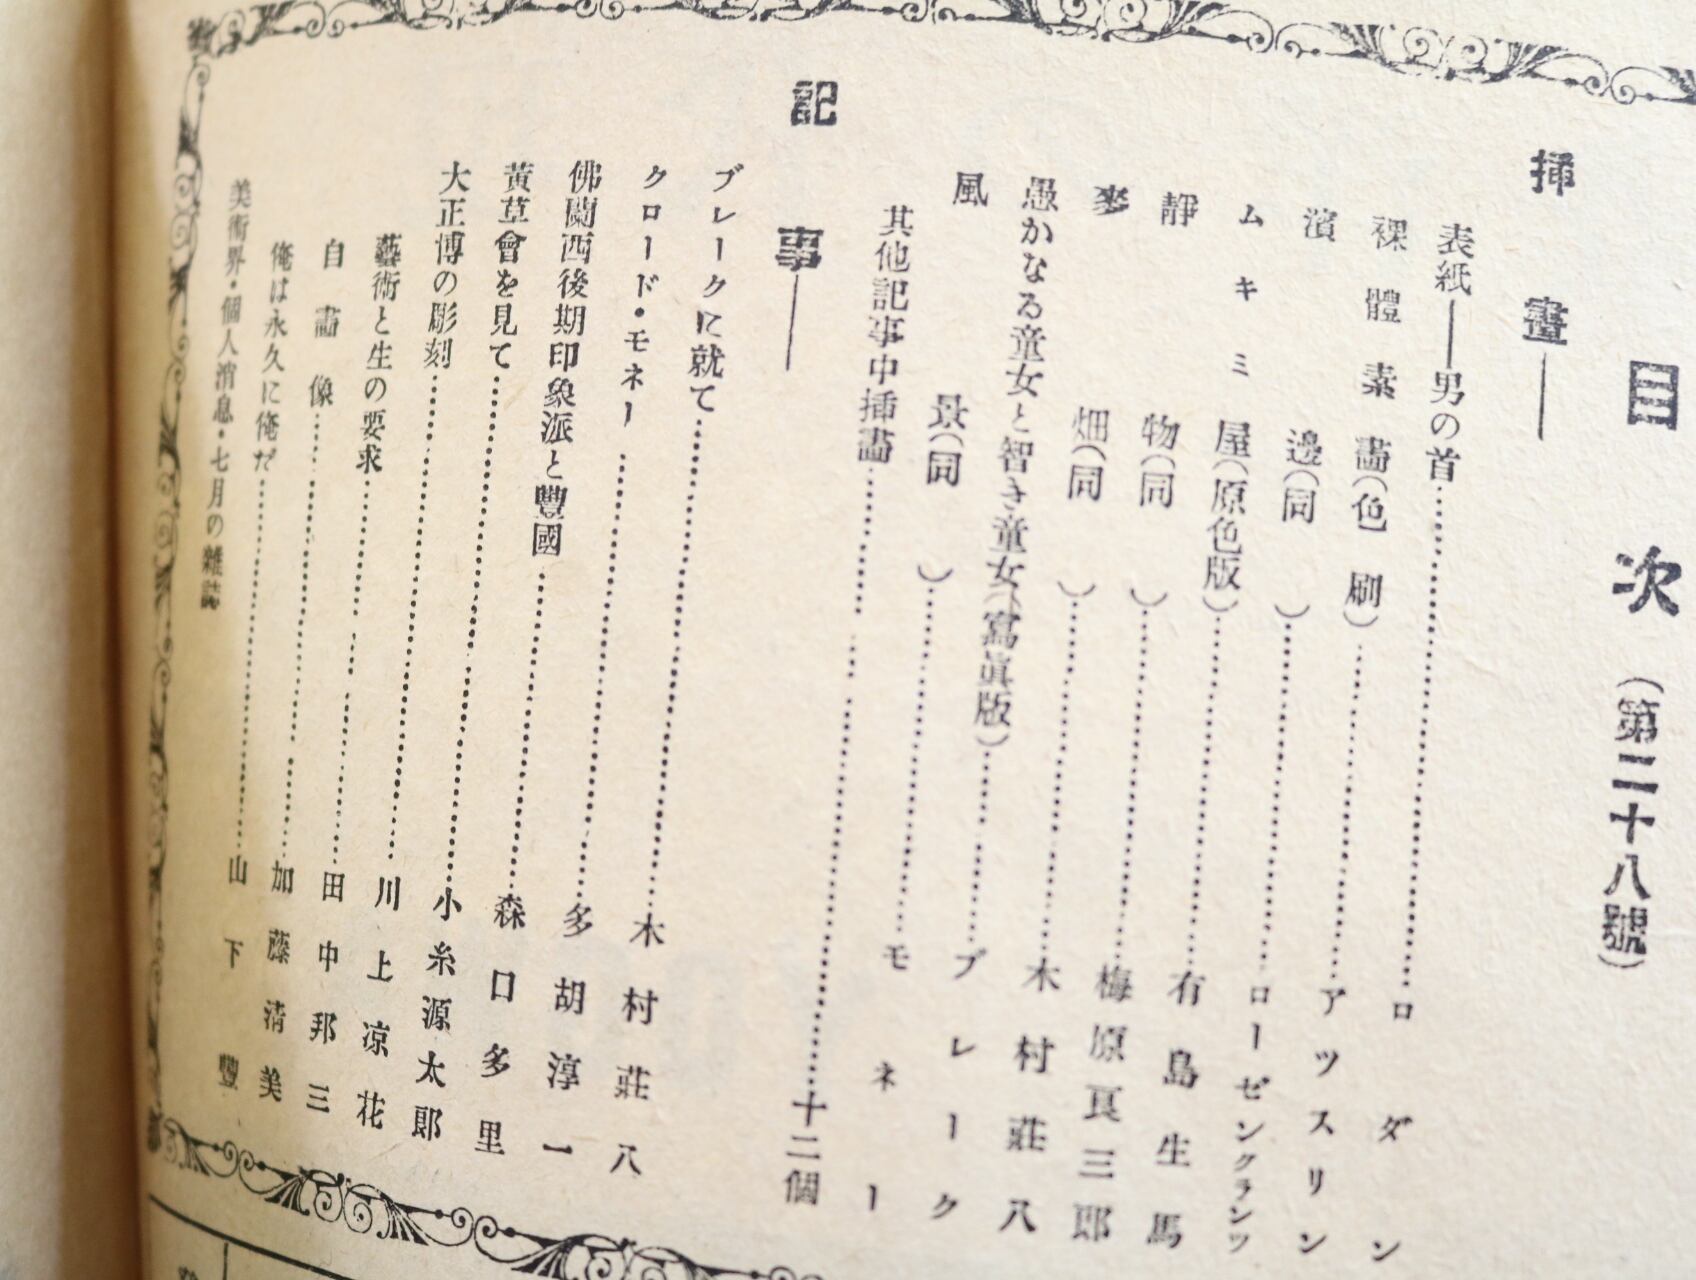 目次（第二十八號）
挿畫――
表紙――男の首…………ロダン
裸體素畫（色刷）…………アツスリン
濱邊（同）…………ローゼンクランツ
ムキミ屋（原色版）…………有島生馬
靜物（同）…………梅原良三郎
麥畑（同）…………木村莊八
愚かなる童女と智き童女（寫眞版）…………ブレーク
風景（同）…………モネー
其他記事中挿畫…………十二個
記事――
ブレークに就て…………木村莊八
クロード・モネー…………多胡淳一
佛蘭西後期印象派と豐國…………森口多里
黃草會を見て…………小糸源太郎
大正博の彫刻…………川上凉花
藝術と生の要求…………田中邦三
自畫像…………加藤清美
俺は永久に俺だ…………山下豐
美術界・個人消息・七月の雜誌